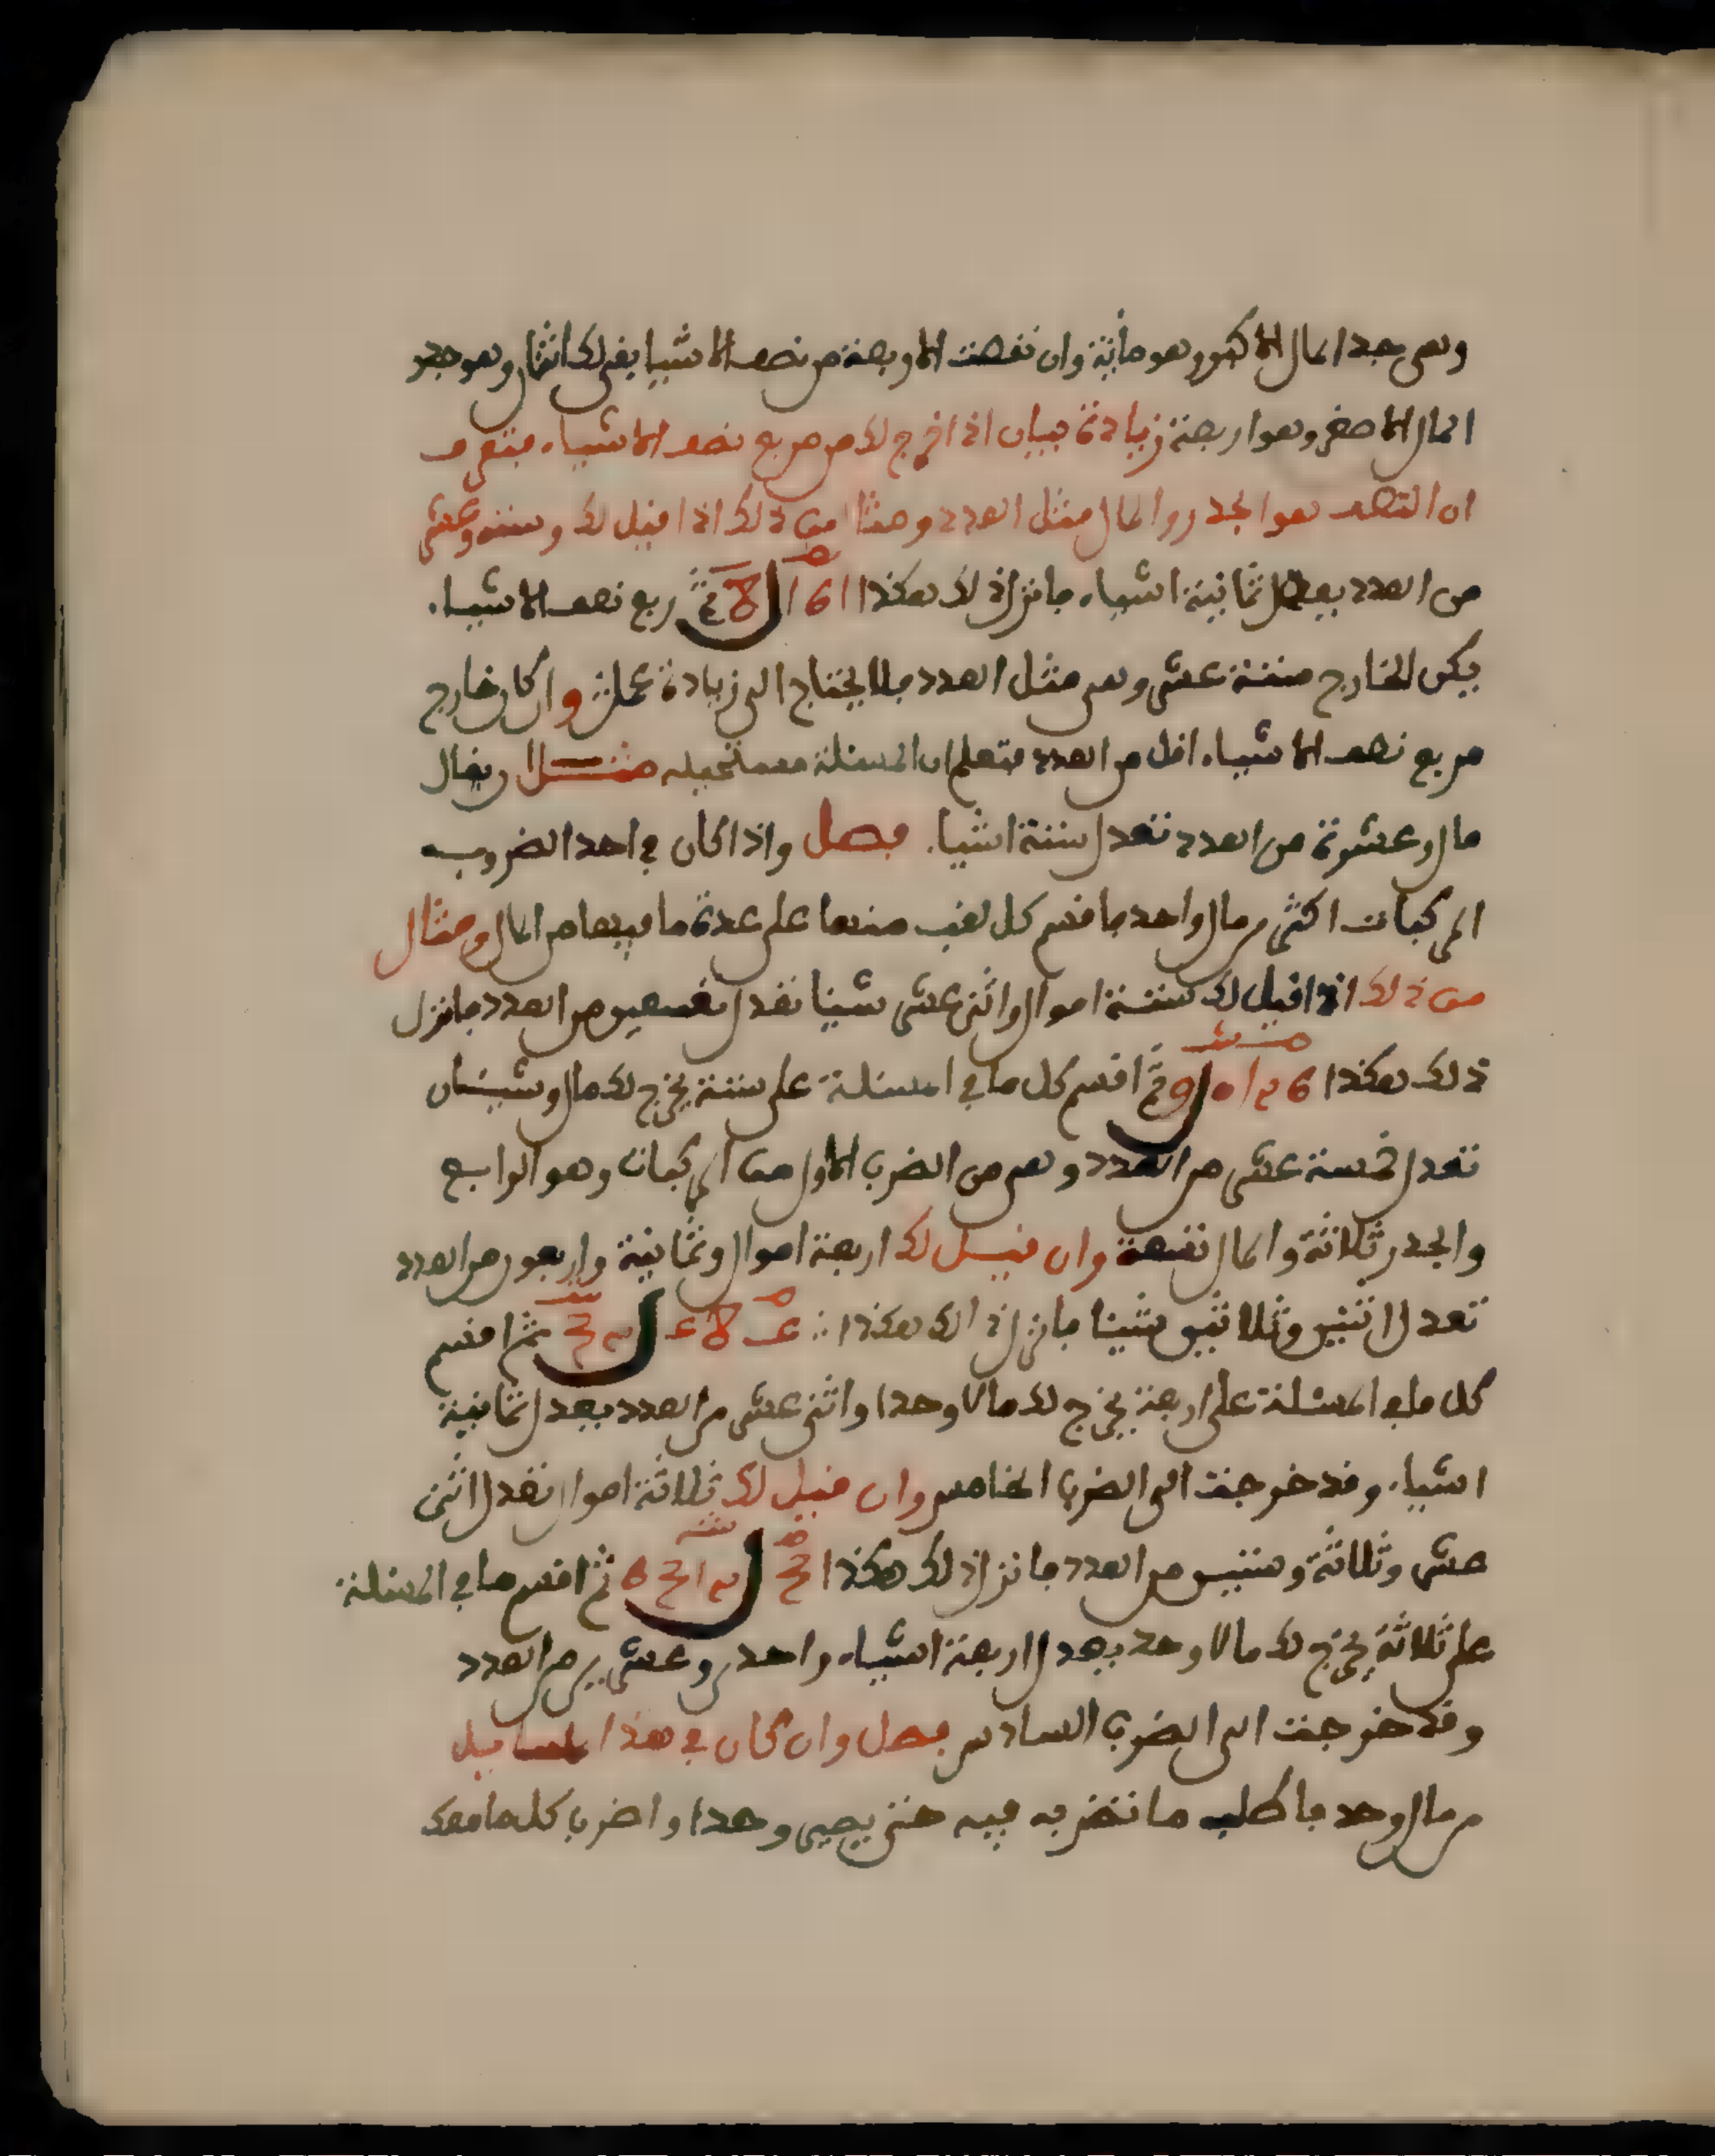 وهي جدر المال الاكبر وهو مائة وان نقصت الاربعة من نصف الاشيا يبقى لك اثنان وهو جدر
المال الاصغر وهو اربعة زيادة بيان اذا خرج لك من مربع نصف الاشياء فتعرف
ان النصف هو الجدر والمال مثل العدد ومثال من ذلك اذا قيل لك وستة وعشر
من العدد يعدل ثمانية اشياء فانزل ذلك هكذا ربع نصف الاشياء
يكن الخارج ستة عشر وهي مثل العدد فلا يحتاج الى زيادة عمل وان كان خارج
مربع نصف الاشياء اقل من العدد فتعلم ان المسئلة مستحيله مثل ان يقال
مال وعشرة من العدد تعدل ستة اشيا فصل واذا كان في احد الضروب
المركبات اكثر من مال واحد فاقسم كل لقب منها على عدة ما فيها من المال ومثال
من ذلك اذا قيل لك ستة اموال واثنى عشر شيئا تعدل تسعين من العدد فانزل
ذلك هكذا ثم اقسم كل ما في المسئلة على ستة يخرج لك مال وشيئان
تعدل خمسة عشر من العدد وهي من الضرب الاول من المركبات وهو الرابع
والجدر ثلاثة والمال تسعة وان قيل لك اربعة اموال وثمانية واربعون من العدد
تعدل اثنين وثلاثين شيئا فانزل ذلك هكذا ثم اقسم
كل ما في المسئلة على اربعة يخرج لك مالا وحدا واثنى عشر من العدد يعدل ثمانية
اشياء وقد خرجت الى الضرب الخامس وان قيل لك ثلاثة اموال تعدل اثنى
عشر وثلاثة وستين من العدد فانزل ذلك هكذا ثم اقسم ما في المسئلة
على ثلاثة يخرج لك مالا وحد يعدل اربعة اشياء واحدى وعشرين من العدد
وقد خرجت الى الضرب السادس فصل وان كان في هذا المسايل
من مال وحد فاطلب ما تضربه فيه حتى يصير وحدا واضرب كل ما معك